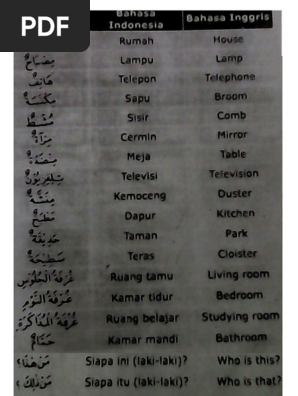 PDF
Bahasa Indonesia Bahasa Inggris
Rumah House
مِصْبَاحٌ Lampu Lamp
هَاتِفٌ Telepon Telephone
مِكْنَسَةٌ Sapu Broom
مُشْطٌ Sisir Comb
مِرْآةٌ Cermin Mirror
مِنْضَدَةٌ Meja Table
تِلِفِزِيُوْنٌ Televisi Television
مِنَشَّةٌ Kemoceng Duster
مَطْبَخٌ Dapur Kitchen
حَدِيْقَةٌ Taman Park
سَطِيْحَةٌ Teras Cloister
غُرْفَةُ الْجُلُوْسِ Ruang tamu Living room
غُرْفَةُ النَّوْمِ Kamar tidur Bedroom
غُرْفَةُ الْمُذَاكَرَةِ Ruang belajar Studying room
حَمَّامٌ Kamar mandi Bathroom
مَنْ هٰذَا؟ Siapa ini (laki-laki)? Who is this?
مَنْ ذٰلِكَ؟ Siapa itu (laki-laki)? Who is that?